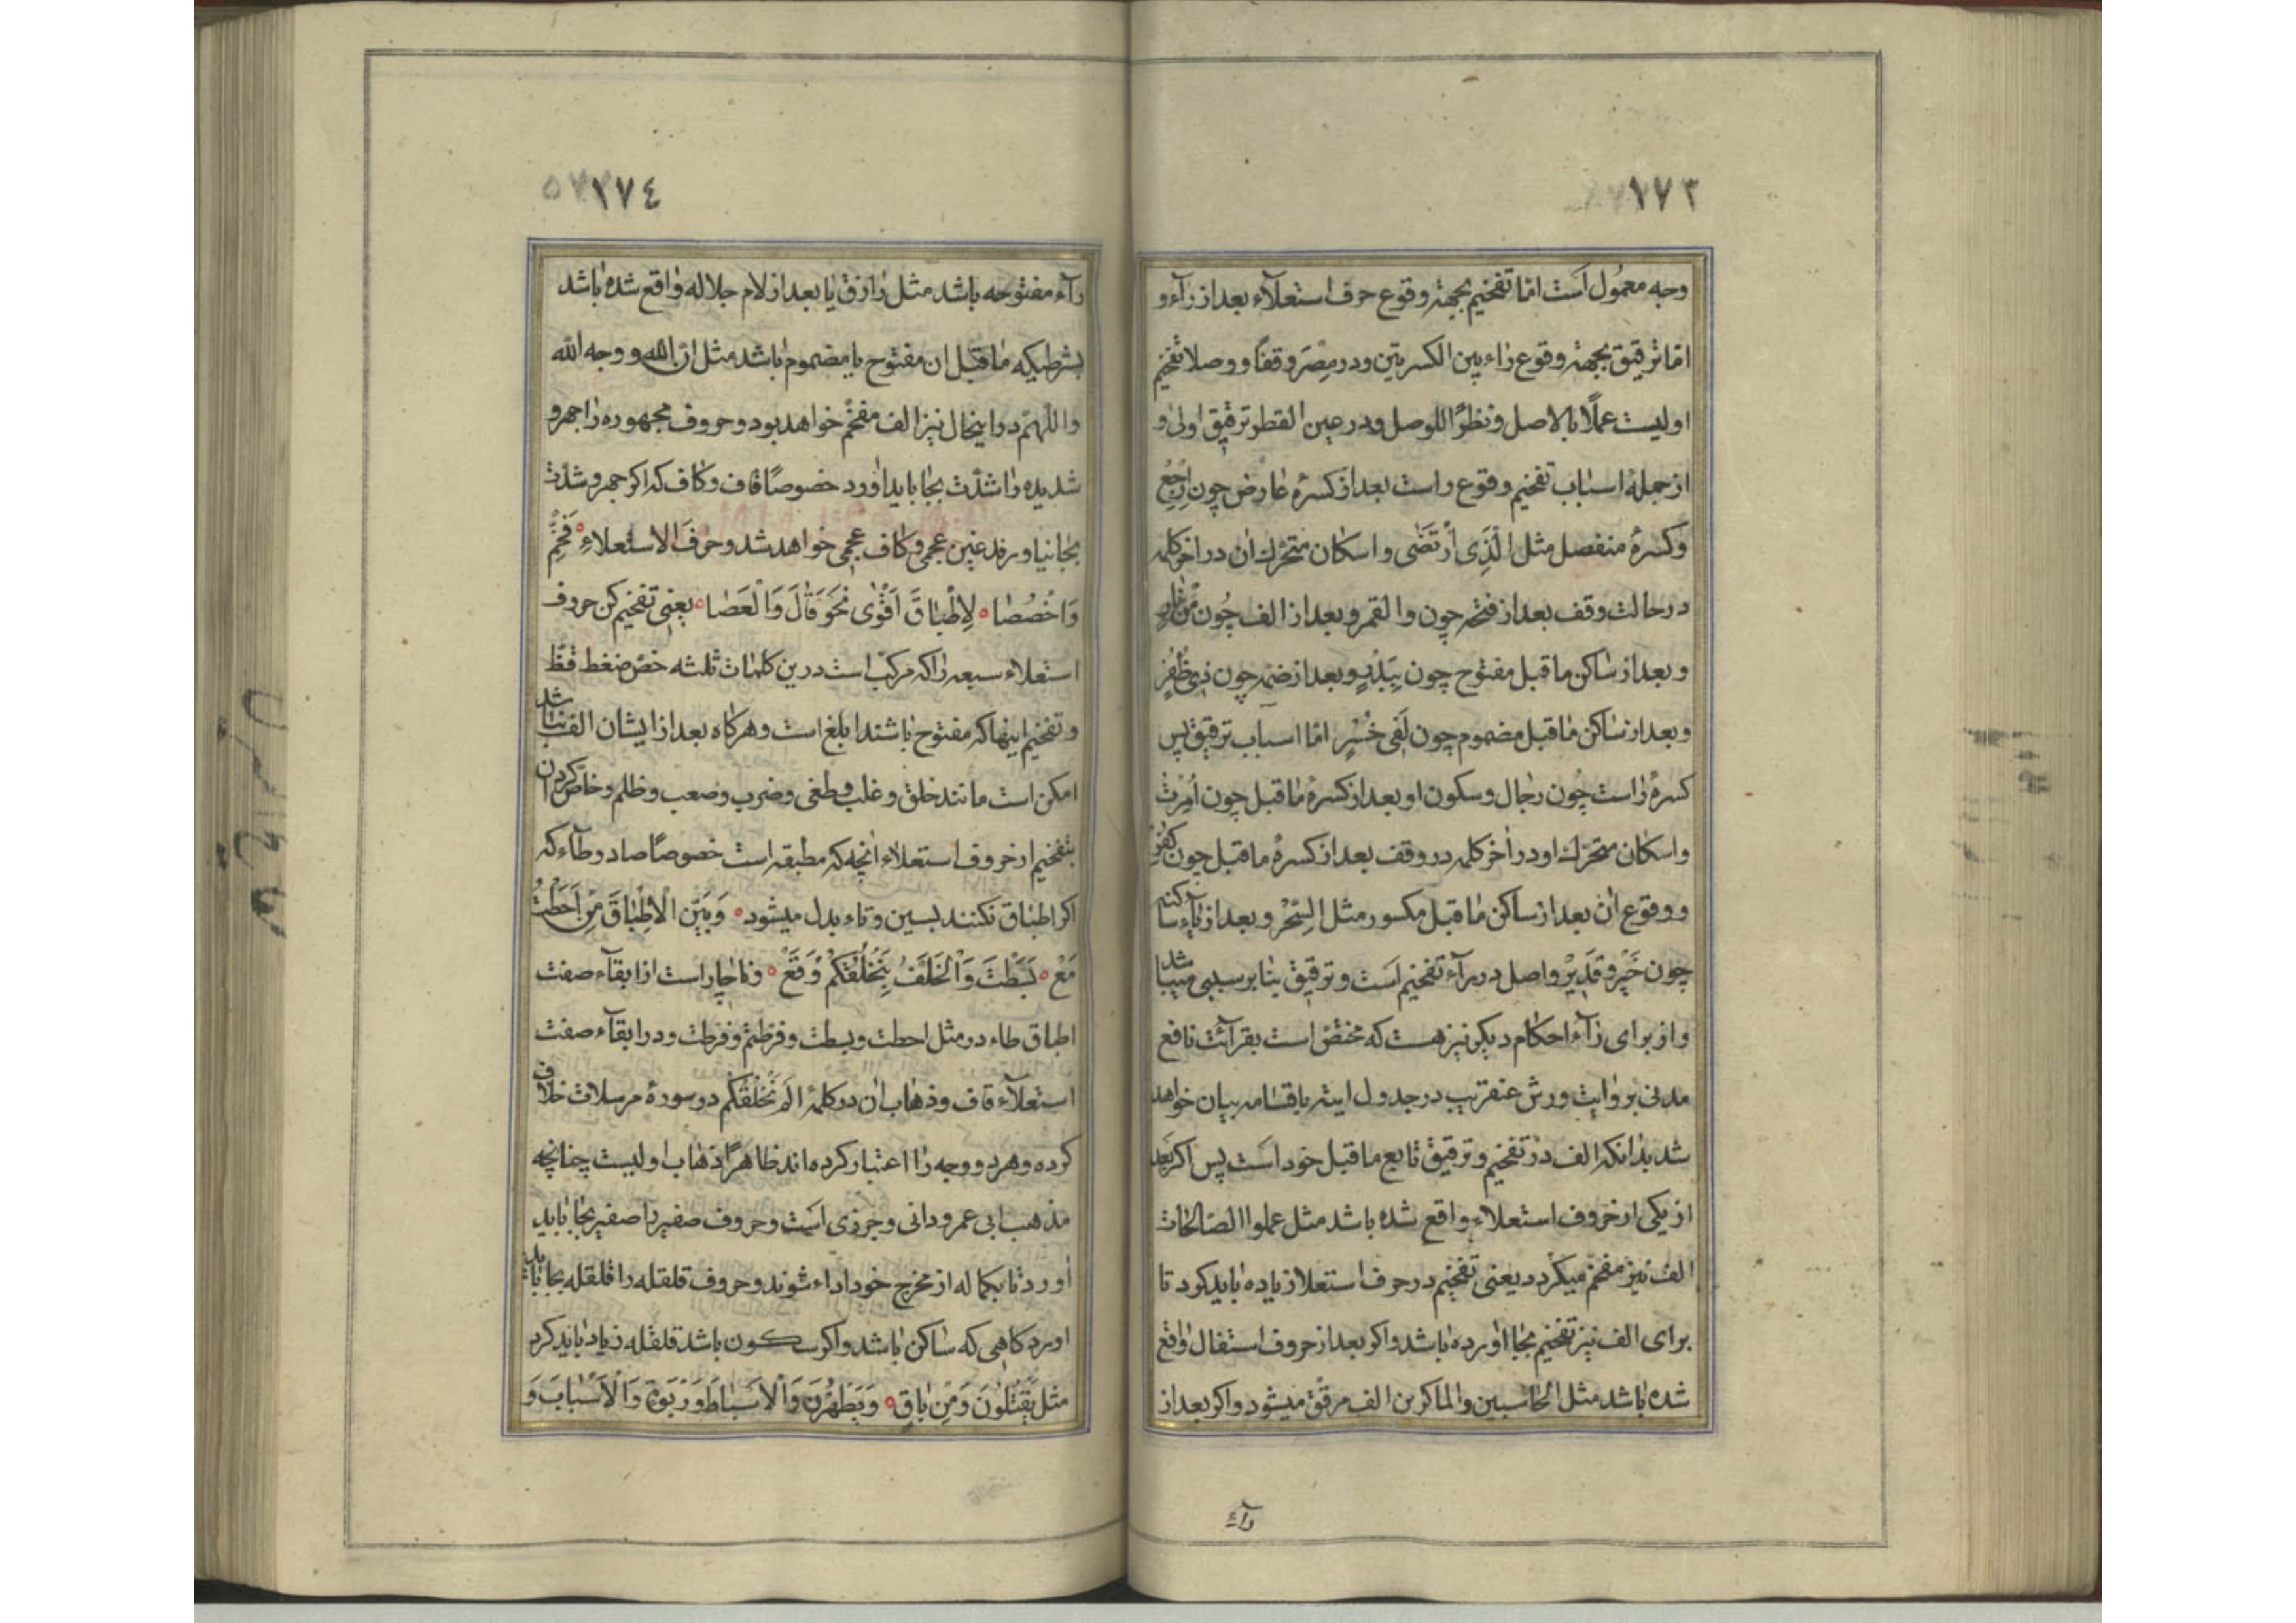 ١٧٣
وجه معمول است امّا تفخیم بجهة وقوع حرف استعلآء بعد از رآء و
امّا ترقیق بجهة وقوع راء بین الکسرتین و در مِصْرَ وقفًا و وصلا تفخیم
اولیست عملًا بالاصل و نظرًا للوصل و در عین القطر ترقیق اولی و
از جملهٔ اسباب تفخیم وقوع راست بعد از کسرهٔ عارض چون اِرْجِعْ
و کسرهٔ منفصل مثل الَّذِی ارْتَضٰی و اسکان متحرّک ان در اخر کلمه
در حالت وقف بعد از فتحه چون والقمر و بعد از الف چُون مِنْ نٰارٍ
و بعد از ساکن ما قبل مفتوح چون بِبَدْرٍ و بعد از ضمّه چون ذی ظُفُرٍ
و بعد از ساکن ما قبل مضموم چون لَفی خُسْرٍ امّا اسباب ترقیق پس
کسرهٔ راست چُون رجال و سکون او بعد از کسرهٔ ما قبل چون اُمِرْتُ
و اسکان متحرّک او در اٰخر کلمه در وقف بعد از کسرهٔ ما قبل چون کُفِرَ
و وقوع ان بعد از ساکن ما قبل مکسور مثل السِّحْر و بعد از یآء ساکنه
چون خَیْر و قَدیْر و اصل در رآء تفخیم است و ترقیق بنا بر سببی میباشد
و از برای رآء احکام دیکر نیز هست که مختصّ است بقرائت نافع
مدنی بروایت ورش عنقریب در جدول ایتر باقسامه بیان خواهد
شد بدانکه الف در تفخیم و ترقیق تابع ما قبل خود است پس اکر بعد
از یکی از حروف استعلاء واقع شده باشد مثل عملوا الصّالحات
الف نیز مفخّم میکردد یعنی تفخیم در حرف استعلا زیاده باید کرد تا
برای الف نیز تفخیم بجا اورده باشد و اکر بعد از حروف استفال واقع
شده باشد مثل الحاسبین و الماکرین الف مرقّق میشود و اکر بعد از
رآء
١٧٤
رآء مفتوحه باشد مثل رازق یا بعد از لام جلاله واقع شده باشد
بشرطیکه ما قبل ان مفتوح یا مضموم باشد مثل انّ الله و وجه الله
و اللّهمّ در اینحال نیز الف مفخّم خواهد بود و حروف مجهوره را جهر و
شدیده را شدّت بجا باید اورد خصوصًا قاف و کاف که اکر جهر و شدّت
بجا نیاورند غین عجمی و کاف عجمی خواهد شد و حرفَ الاستعلاءِ فَخِّمْ
وَاخْصُصٰا لِاِطْبٰاقَ اَقْوٰی نَحْوَ قٰالَ وَالْعَصٰا یعنی تفخیم کن حروف
استعلاء سبعه را که مرکّب است درین کلمات ثلثه خصّ ضغط قظ
و تفخیم اینها که مفتوح باشند ابلغ است و هرکاه بعد از ایشان الف نباشد
امکن است مانند خلق و غلب و طغی و ضرب و صعب و ظلم و خاصّ کردن
بتفخیم از حروف استعلاء انچه که مطبقه است خصوصًا صاد و طآء که
اکر اطباق نکنند بسین و تاء بدل میشود وَبَیِّنِ الْاِطْبٰاقَ مِنْ اَحَطْتُ
مَعْ بَسَطْتَ وَالْخُلْفُ بِنَخْلُقْکُمْ وَقَعْ و ناچار است از ابقآء صفت
اطباق طاء در مثل احطت و بسطت و فرّطتم و فرّطت و در ابقآء صفت
استعلآء قاف و ذهاب ان در کلمهٔ اَلَمْ نَخْلُقْکُمْ در سورهٔ مرسلات خلاف
کرده و هر دو وجه را اعتبار کرده اند ظاهرًا ذهاب اولیست چنانچه
مذهب ابی عمرو دانی و جزری است و حروف صفیر را صفیر بجا باید
اورد تا بکماله از مخرج خود اداء شوند و حروف قلقله را قلقله بجا باید
اورد کاهی که ساکن باشد و اکر سکون باشد قلقله زیاد باید کرد
مثل یَقْتُلُونَ وَمِن بٰاقٍ وَیَطْهُرْنَ وَالْاَسْبٰاطَ وَرَبْوَةٍ وَالْاَسْبٰابَ وَ